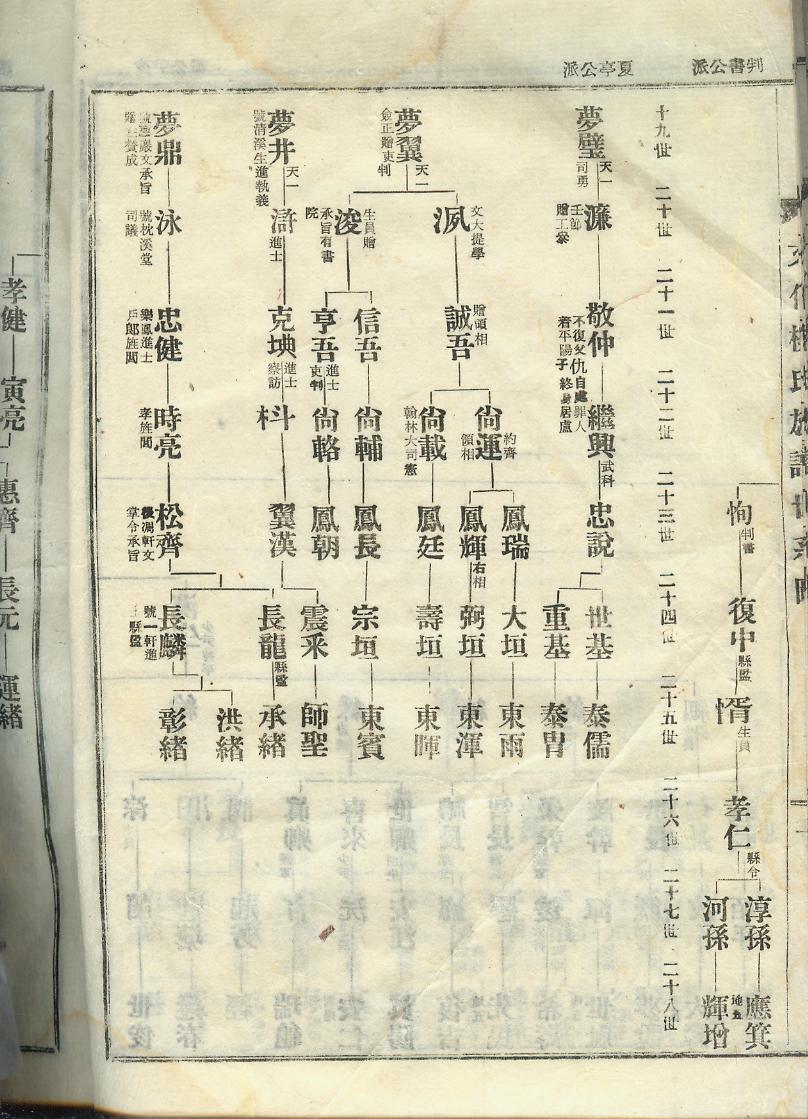 判書公派
夏亭公派
恂 判書
復中 縣監
㥠 生員
孝仁 縣令
淳孫
應箕
河孫
輝增
十九世
二十世
二十一世
二十二世
二十三世
二十四世
二十五世
二十六世
二十七世
二十八世
夢璧 天一
司勇
濂
贈工參
敬仲
不復父仇自處罪人
着平陽子終身居廬
繼興 武科
忠說
世基
泰儒
重基
泰冑
夢翼 天一
僉正贈吏判
夙 文大提學
誠吾 贈領相
尙運 約齋
領相
鳳瑞
大垣
東雨
鳳輝 右相
弼垣
東渾
尙載
翰林大司憲
鳳廷
壽垣
東暉
淩 生員贈
承旨有書
院
信吾
尙輔
鳳長
宗垣
東賓
亨吾 進士
吏判
尙輅
鳳朝
夢井 天一
號清溪生進執義
滸 進士
克㙉 進士
察訪
枓
翼漢
震釆
師聖
長龍 縣監
承緖
夢鼎
泳
號枕溪堂
司議
忠健
樂鳳進士
戶郞旌閭
時亮
孝旌閭
松齊
掌令承旨
長麟
號一軒進
縣監
洪緖
彰緖
孝健
寅亮
惠齊
長元
運緖